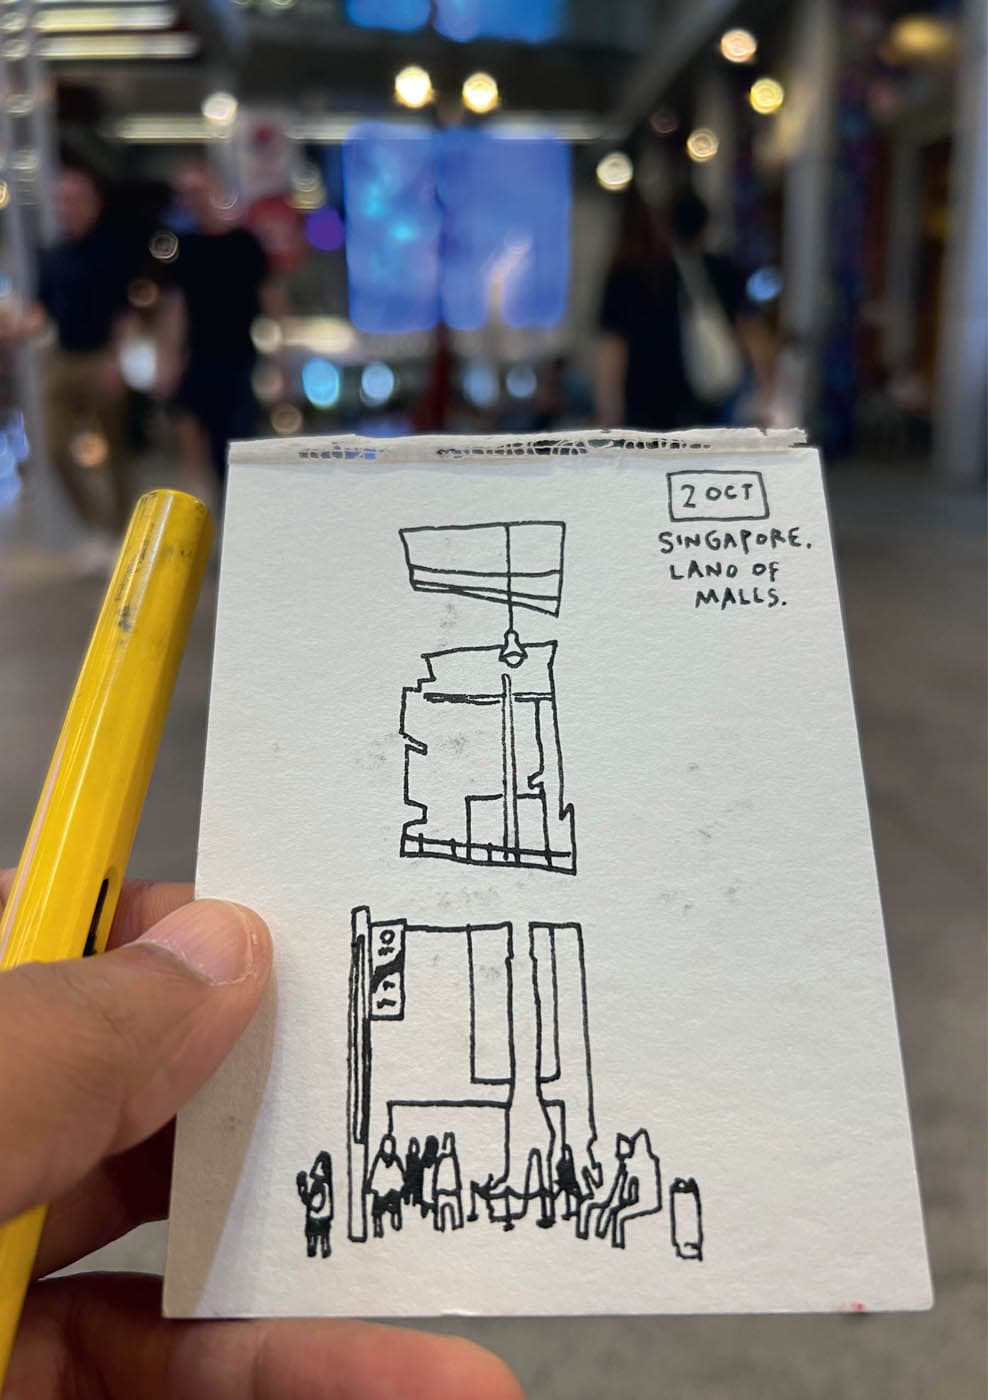 2 OCT
SINGAPORE.
LAND OF
MALLS.